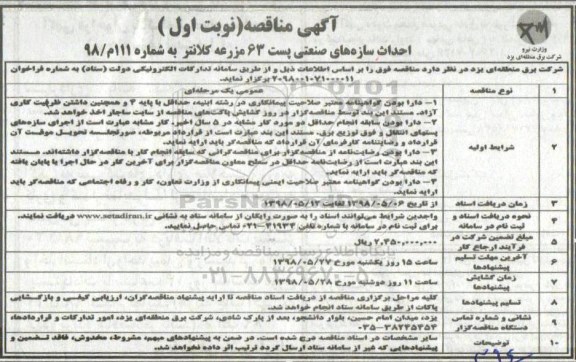 آگهی مناقصه(نوبت اول)
وزارت نیرو
شرکت برق منطقه‌ای یزد
احداث سازه‌های صنعتی پست ۶۳ مزرعه کلانتر به شماره ۱۱۱م/۹۸
شرکت برق منطقه‌ای یزد در نظر دارد مناقصه فوق را بر اساس اطلاعات ذیل و از طریق سامانه تدارکات الکترونیکی دولت (ستاد) به شماره فراخوان
۲۰۹۸۰۰۱۰۷۱۰۰۰۰۱۱ برگزار نماید.
۱ نوع مناقصه عمومی یک مرحله‌ای
۲ شرایط اولیه
۱- دارا بودن گواهینامه معتبر صلاحیت پیمانکاری در رشته ابنیه، حداقل با پایه ۴ و همچنین داشتن ظرفیت کاری
آزاد. مستند این بند توسط مناقصه‌گزار در روز گشایش پاکت‌های مناقصه از سایت ساجار اخذ خواهد شد.
۲- دارا بودن سابقه انجام حداقل دو مورد کار مشابه در ۵ سال اخیر. کار مشابه عبارت است از اجرای سازه‌های
پستهای انتقال و فوق توزیع برق. مستند این بند عبارت است از قرارداد مربوطه، صورتجلسه تحویل موقت آن
قرارداد و رضایتنامه کارفرمای آن قرارداد که مناقصه‌گر باید ارایه نماید.
۳- دارا بودن رضایت‌نامه از مناقصه‌گزار برای مناقصه‌گرانی که سابقه انجام کار با مناقصه‌گزار داشته‌اند. مستند
این بند عبارت است از رضایت‌نامه حداقل در سطح معاون مناقصه‌گزار برای آخرین کار در حال اجرا یا پایان یافته
که مناقصه‌گر باید ارایه نماید.
۴- دارا بودن گواهینامه معتبر صلاحیت ایمنی پیمانکاری از وزارت تعاون، کار و رفاه اجتماعی که مناقصه‌گر باید
ارایه نماید.
۳ زمان دریافت اسناد از تاریخ ۱۳۹۸/۰۵/۰۶ لغایت ۱۳۹۸/۰۵/۱۲
۴ نحوه دریافت اسناد و ثبت نام در سامانه
واجدین شرایط می‌توانند اسناد را به صورت رایگان از سامانه ستاد به نشانی www.setadiran.ir دریافت نمایند.
ثبت نام در سامانه با شماره تلفن ۴۱۹۳۴-۰۲۱ تماس حاصل نمایید.
۵ مبلغ تضمین شرکت در فرآیند ارجاع کار ۲,۴۵۰,۰۰۰,۰۰۰ ریال
۶ آخرین مهلت تسلیم پیشنهادها ساعت ۱۵ روز یکشنبه مورخ ۱۳۹۸/۰۵/۲۷
۷ زمان گشایش پیشنهادها ساعت ۱۱ روز دوشنبه مورخ ۱۳۹۸/۰۵/۲۸
۸ تسلیم پیشنهادها
کلیه مراحل برگزاری مناقصه از دریافت اسناد مناقصه تا ارایه پیشنهاد مناقصه‌گران، ارزیابی کیفی و بازگشایی
پاکات از طریق سامانه ستاد انجام خواهد شد.
۹ نشانی و شماره تماس دستگاه مناقصه‌گزار
یزد، میدان امام حسین، بلوار دانشجو، بعد از پارک شادی، شرکت برق منطقه‌ای یزد، امور تدارکات و قراردادها،
۰۳۵-۳۸۲۴۵۴۵۴
۱۰ توضیحات
سایر مشخصات در اسناد مناقصه درج شده است. در ضمن به پیشنهادهای مبهم، مشروط، مخدوش، فاقد تضمین و
پیشنهادهایی که غیر از سامانه ستاد ارسال گردد ترتیب اثر داده نخواهد شد.